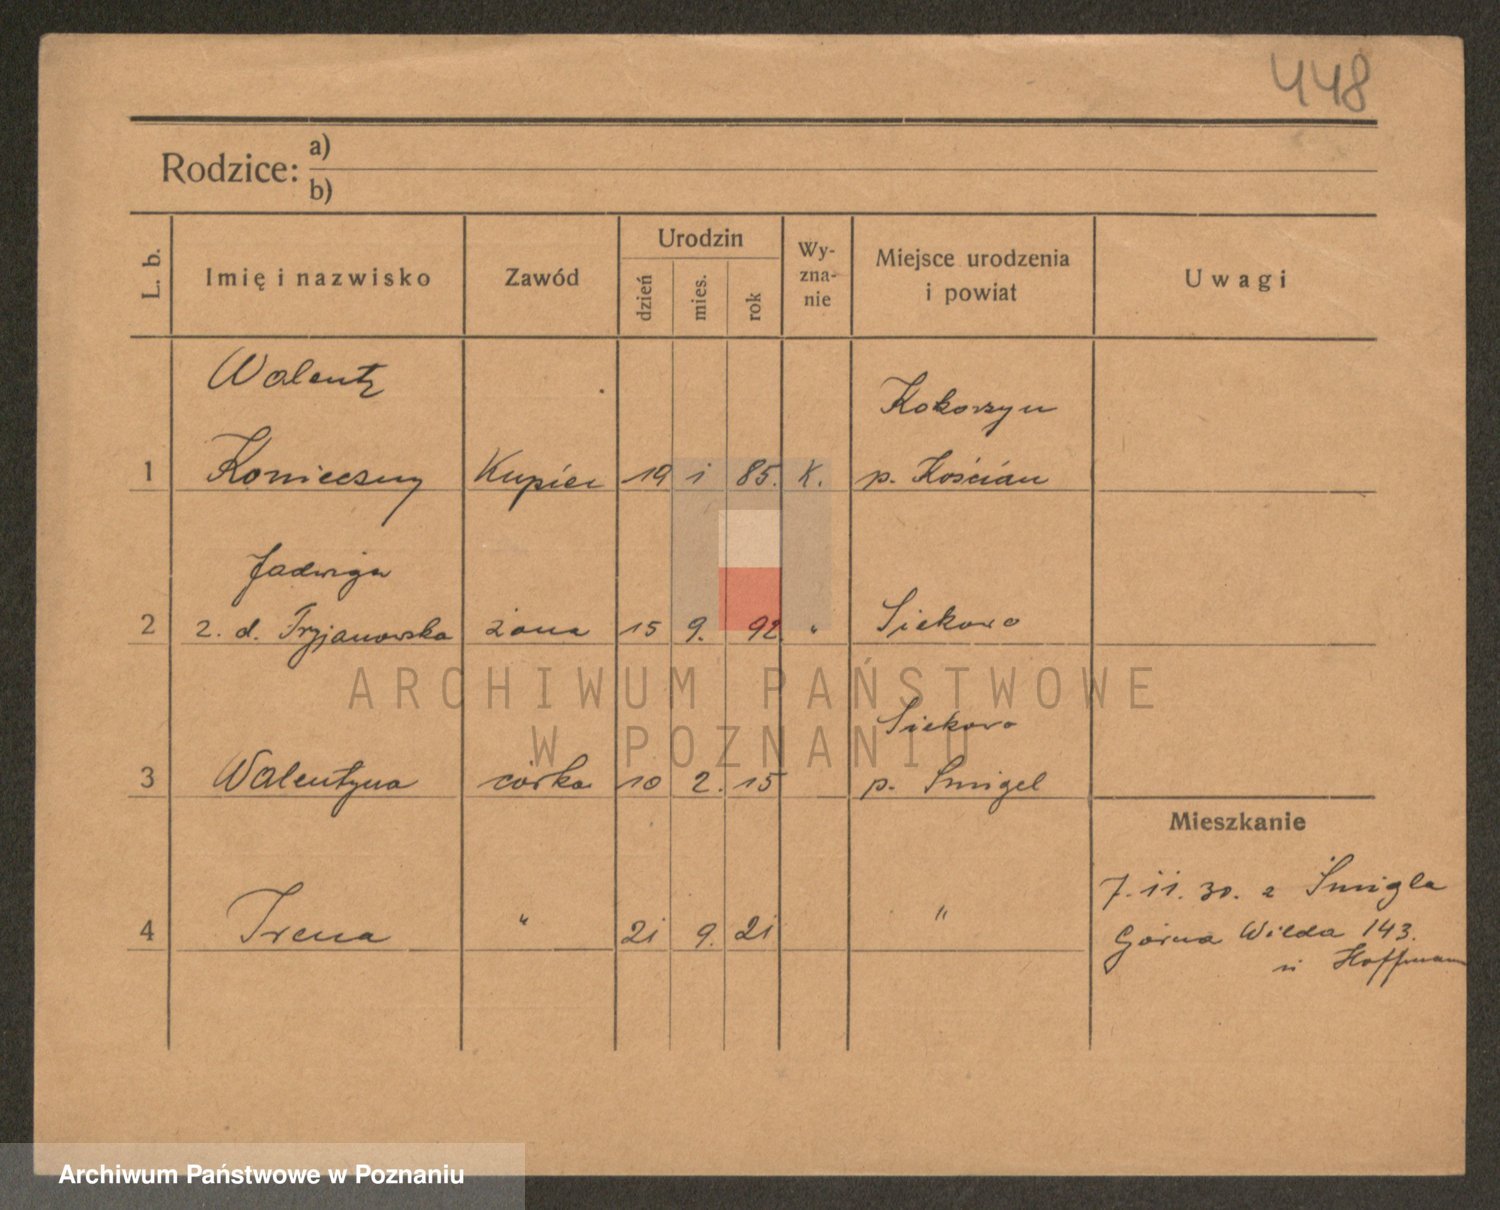 448
Rodzice: a)
b)
L. b. Imię i nazwisko Zawód Urodzin dzień mies. rok Wy-zna-nie Miejsce urodzenia i powiat Uwagi
Walenty Kokorzyn
1 Konieczny Kupiec 19 1 85. K. p. Kościan
Jadwiga
2 z. d. Tryjanowska żona 15 9. 92 " Siekowo
Siekowo
3 Walentyna córka 10 2. 15 p. Śmigel
Mieszkanie
7.11.30. z Śmigla
4 Irena " 21 9. 21 " Górna Wilda 143.
u Hoffmann
ARCHIWUM PAŃSTWOWE
W POZNANIU
Archiwum Państwowe w Poznaniu